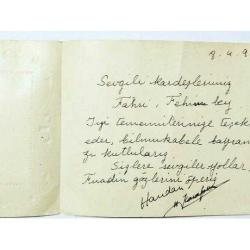 9.4.9
Sevgili Kardeşlerimiz
Fahri, Fehime bey
İyi temennilerinize teşek
eder, bilmukabele bayram
zı kutlularız
Sizlere sevgiler yollar,
Fuadın gözlerini öperiz
Handan